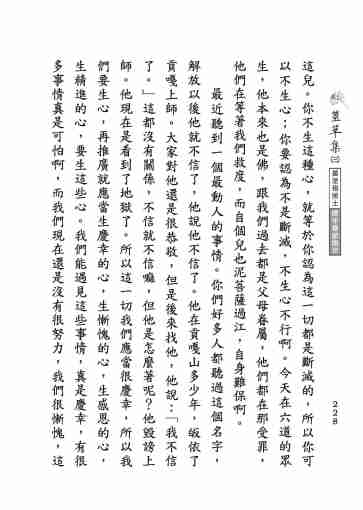 蓳草集㈡
228
這兒。你不生這種心,就等於你認為這一切都是斷滅的,所以你可
以不生心;你要認為不是斷滅,不生心不行啊。今天在六道的眾
生,他本來也是佛,跟我們過去都是父母眷屬,他們都在那受罪,
他們在等著我們救度,而自個兒也泥菩薩過江,自身難保啊。
最近聽到一個最動人的事情。你們好多人都聽過這個名字,
解放以後他就不信了,他說他不信了。他在貢嘎山多少年,皈依了
貢嘎上師。大家對他還是很恭敬,但是後來找他,他說:「我不信
了。」這都沒有關係,不信就不信囉,但他是怎麼著呢?他毀謗上
師。他現在是看到了地獄了。所以這一切我們應當很慶幸,所以我
們要生心,再推廣就應當生慶幸的心,生慚愧的心,生感恩的心,
生精進的心,要生這些心。我們能遇見這些事情,真是慶幸,有很
多事情真是可怕啊,而我們現在還是沒有很努力,我們很慚愧,這